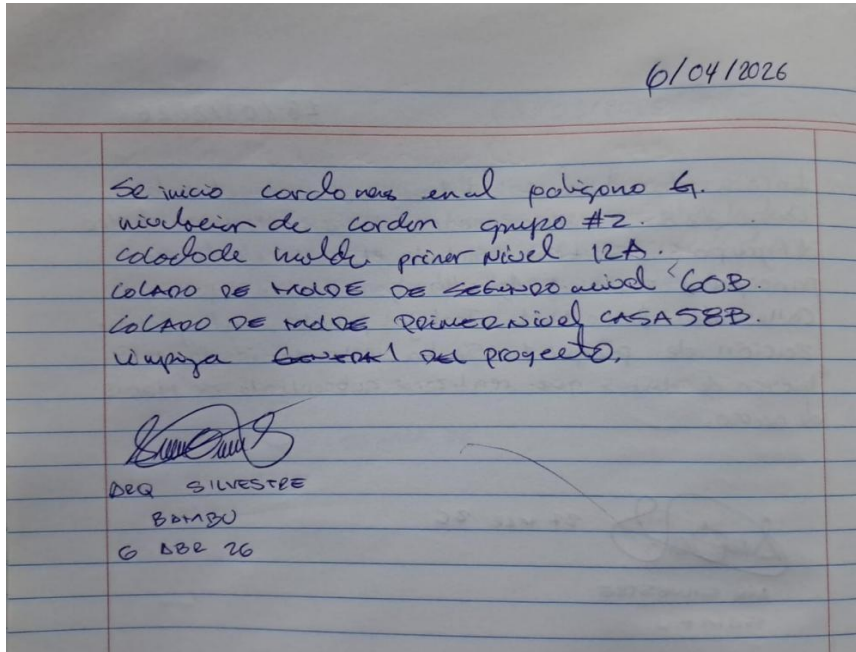 6/04/2026
Se inicio cordones en el poligono G.
nivelacion de cordon grupo #2.
colado de molde primer nivel 12A.
COLADO DE MOLDE DE SEGUNDO nivel 60B.
COLADO DE MOLDE PRIMER Nivel CASA 58B.
limpieza GENERAl DEL proyecto.
ARQ SILVESTRE
BAMBU
6 ABR 26